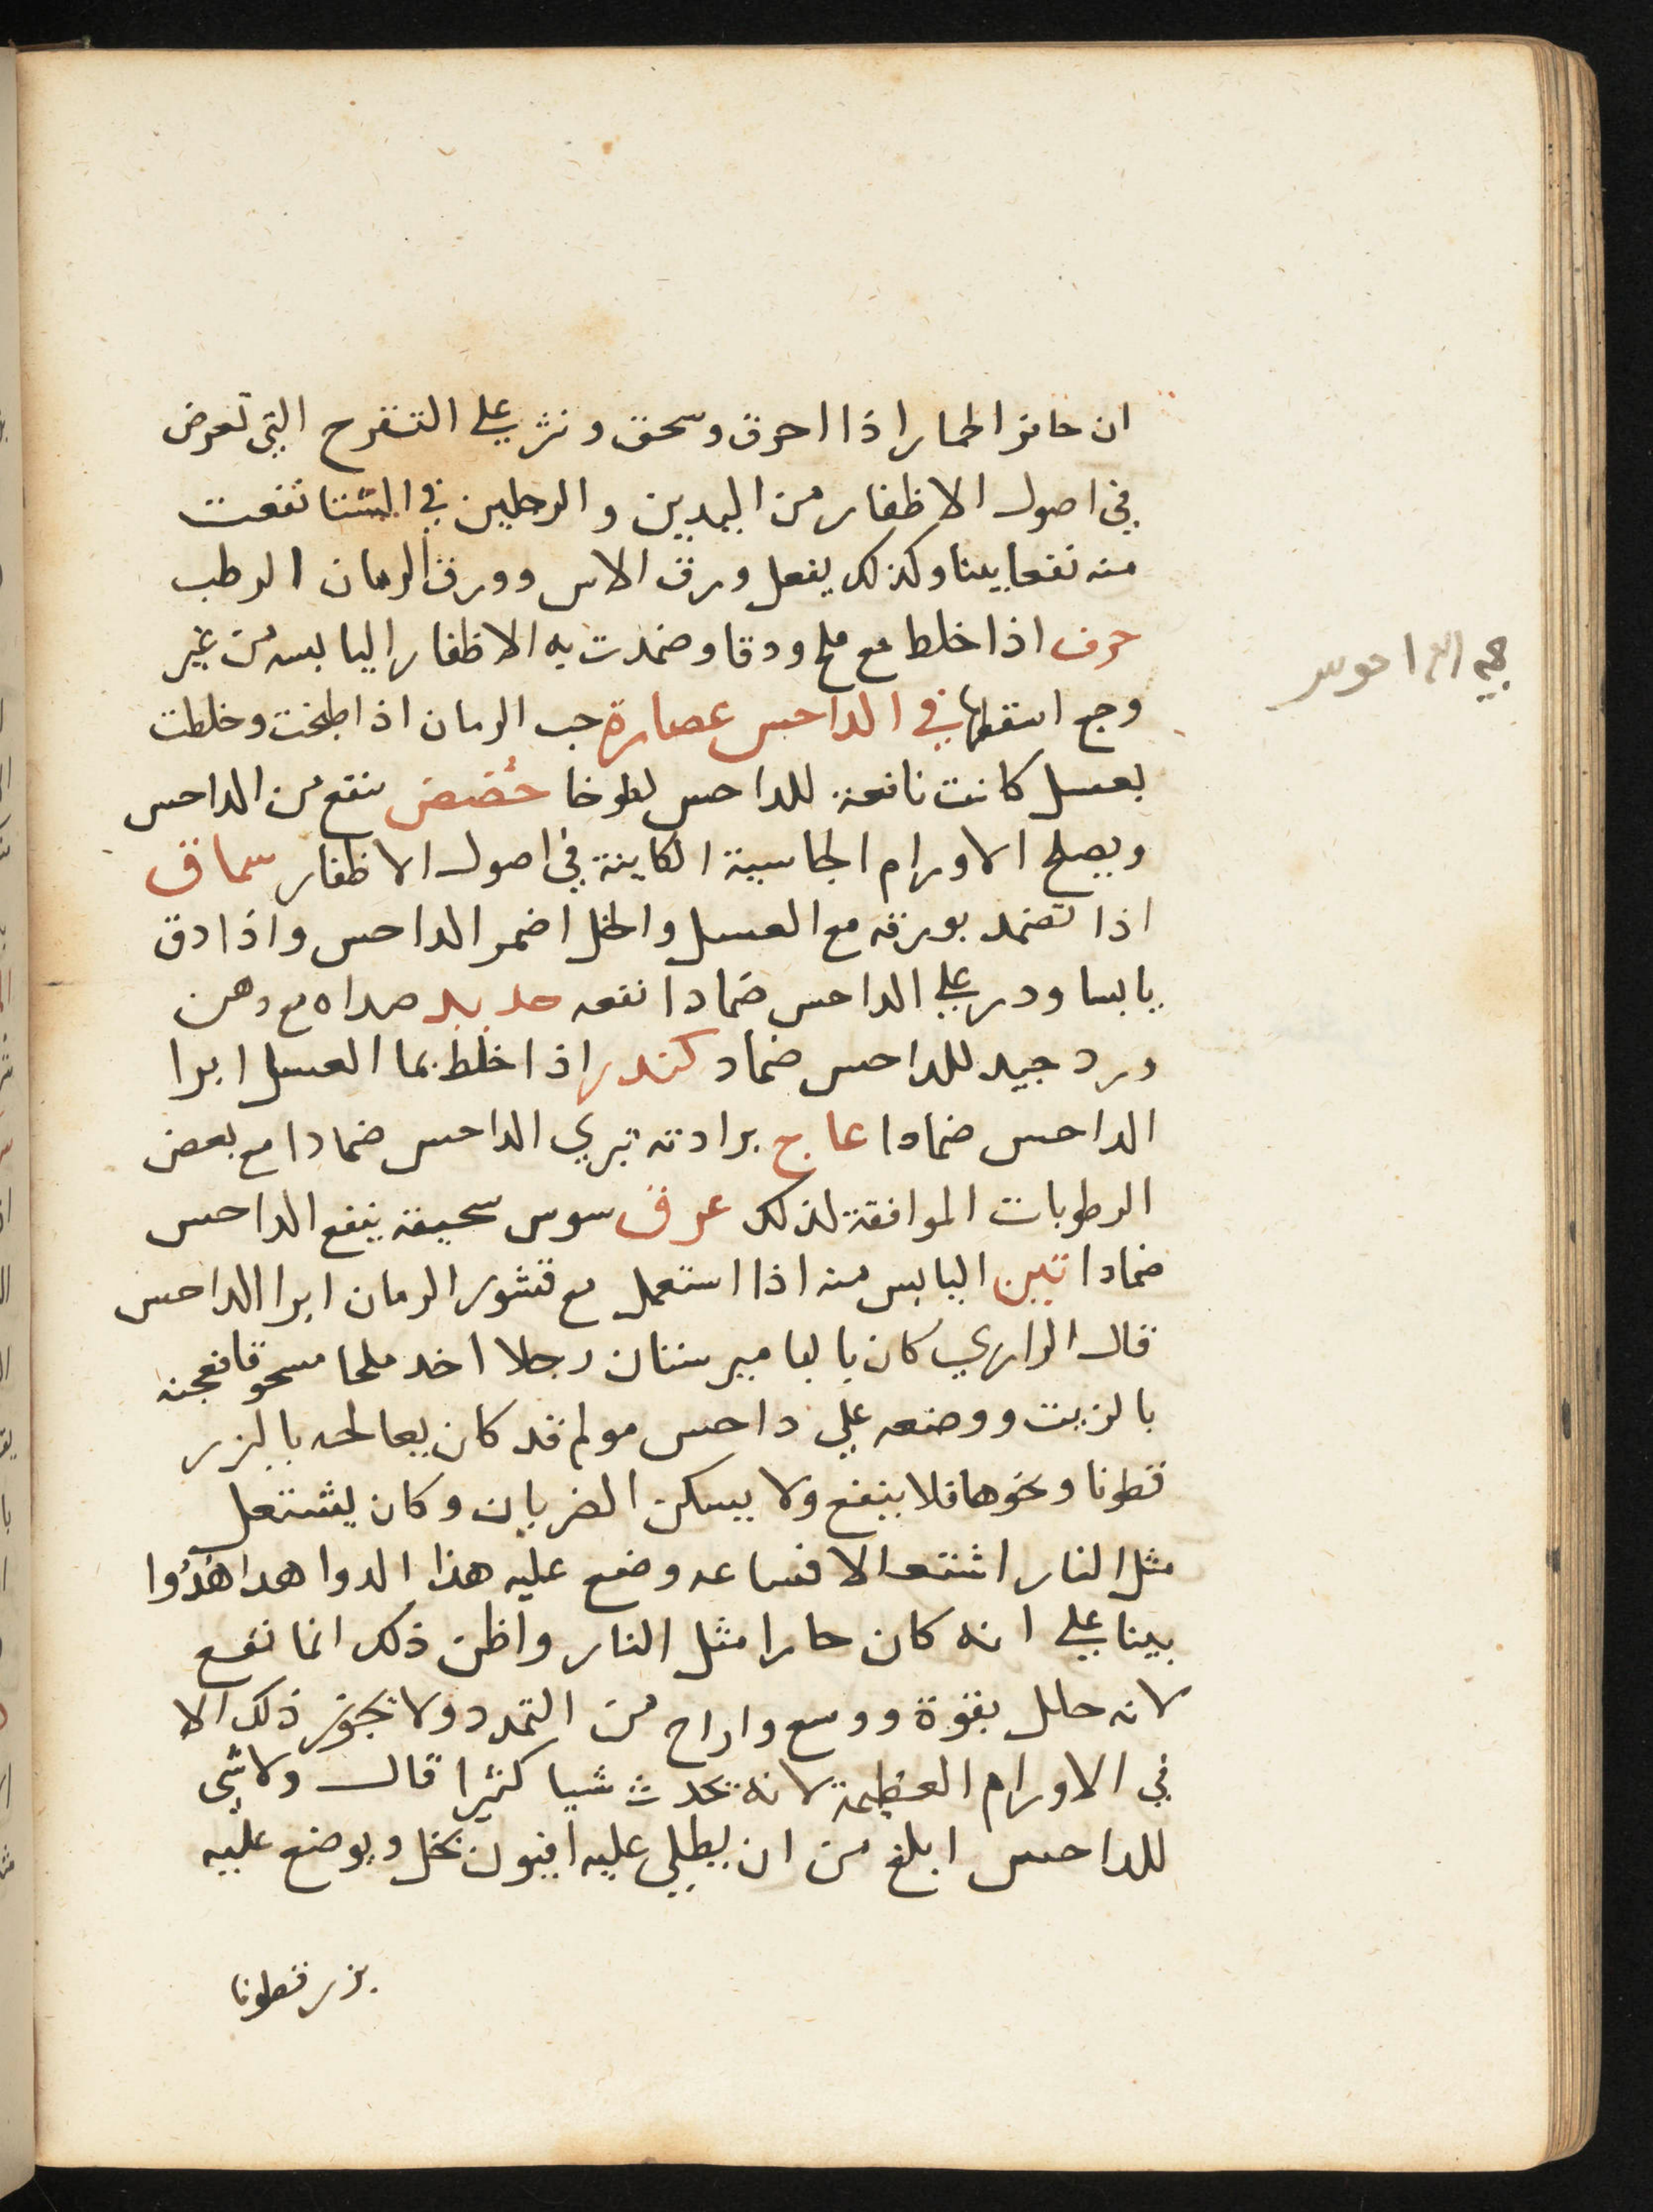 ان حافر الحمار اذا احرق وسحق ونثر علي التقرح التي تعرض
في اصول الاظفار من اليدين والرجلين في الشتا نفعت
منه نفعا بينا وكذلك يفعل ورق الاس وورق الرمان الرطب
حرف اذا خلط مع ملح ودقا وضمدت به الاظفار اليابسه من غير
وجع اسقطها في الداحس عصارة حب الرمان اذا طبخت وخلطت
بعسل كانت نافعة للداحس لطوخا حُضض ينفع من الداحس
ويصلح الاورام الجاسية الكاينة في اصول الاظفار سماق
اذا تضمد بورقه مع العسل والخل اضمر الداحس واذا دق
يابسا ودر علي الداحس ضمادا نفعه حديد صداه مع دهن
ورد جيد للداحس ضماد كندر اذا خلط بما العسل ابرا
الداحس ضمادا عاج برادته تبري الداحس ضمادا مع بعض
الرطوبات الموافقة لذلك عرق سوس سحيقه ينفع الداحس
ضمادا تين اليابس منه اذا استعمل مع قشور الرمان ابرا الداحس
قال الرازي كان بالبامير ستان رجلا اخد ملحا مسحوقا فعجنه
بالزيت ووضعه علي داحس مولم قد كان يعالجه بالبزر
قطونا ونحوها فلا ينفع ولا يسكن الضربان وكان يشتعل
مثل النار اشتعالا فساعه وضع عليه هذا الدوا هدا هُدُوا
بينا علي انه كان حارا مثل النار واظن ذلك انما نفع
لانه حلل بقوة ووسع واراح من التمدد ولا يجوز ذلك الا
في الاورام العظيمة لانه يحدث شيا كثيرا قال ولا شي
للداحس ابلغ من ان يطلي عليه افيون بخل ويوضع عليه
بزر قطونا